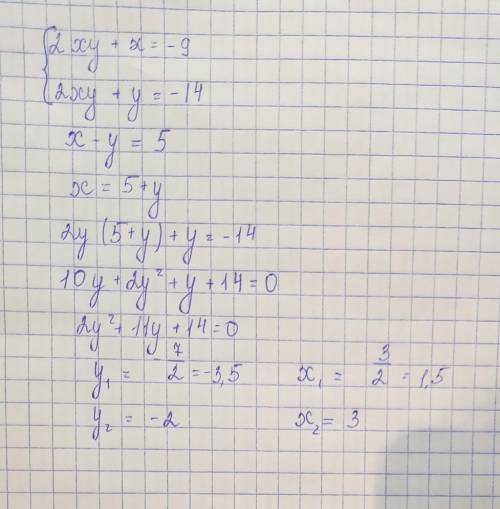 {2xy + x = -9
2xy + y = -14
x - y = 5
x = 5 + y
2y (5 + y) + y = -14
10y + 2y² + y + 14 = 0
2y² + 11y + 14 = 0
y₁ = -7/2 = -3,5 x₁ = 3/2 = 1,5
y₂ = -2 x₂ = 3